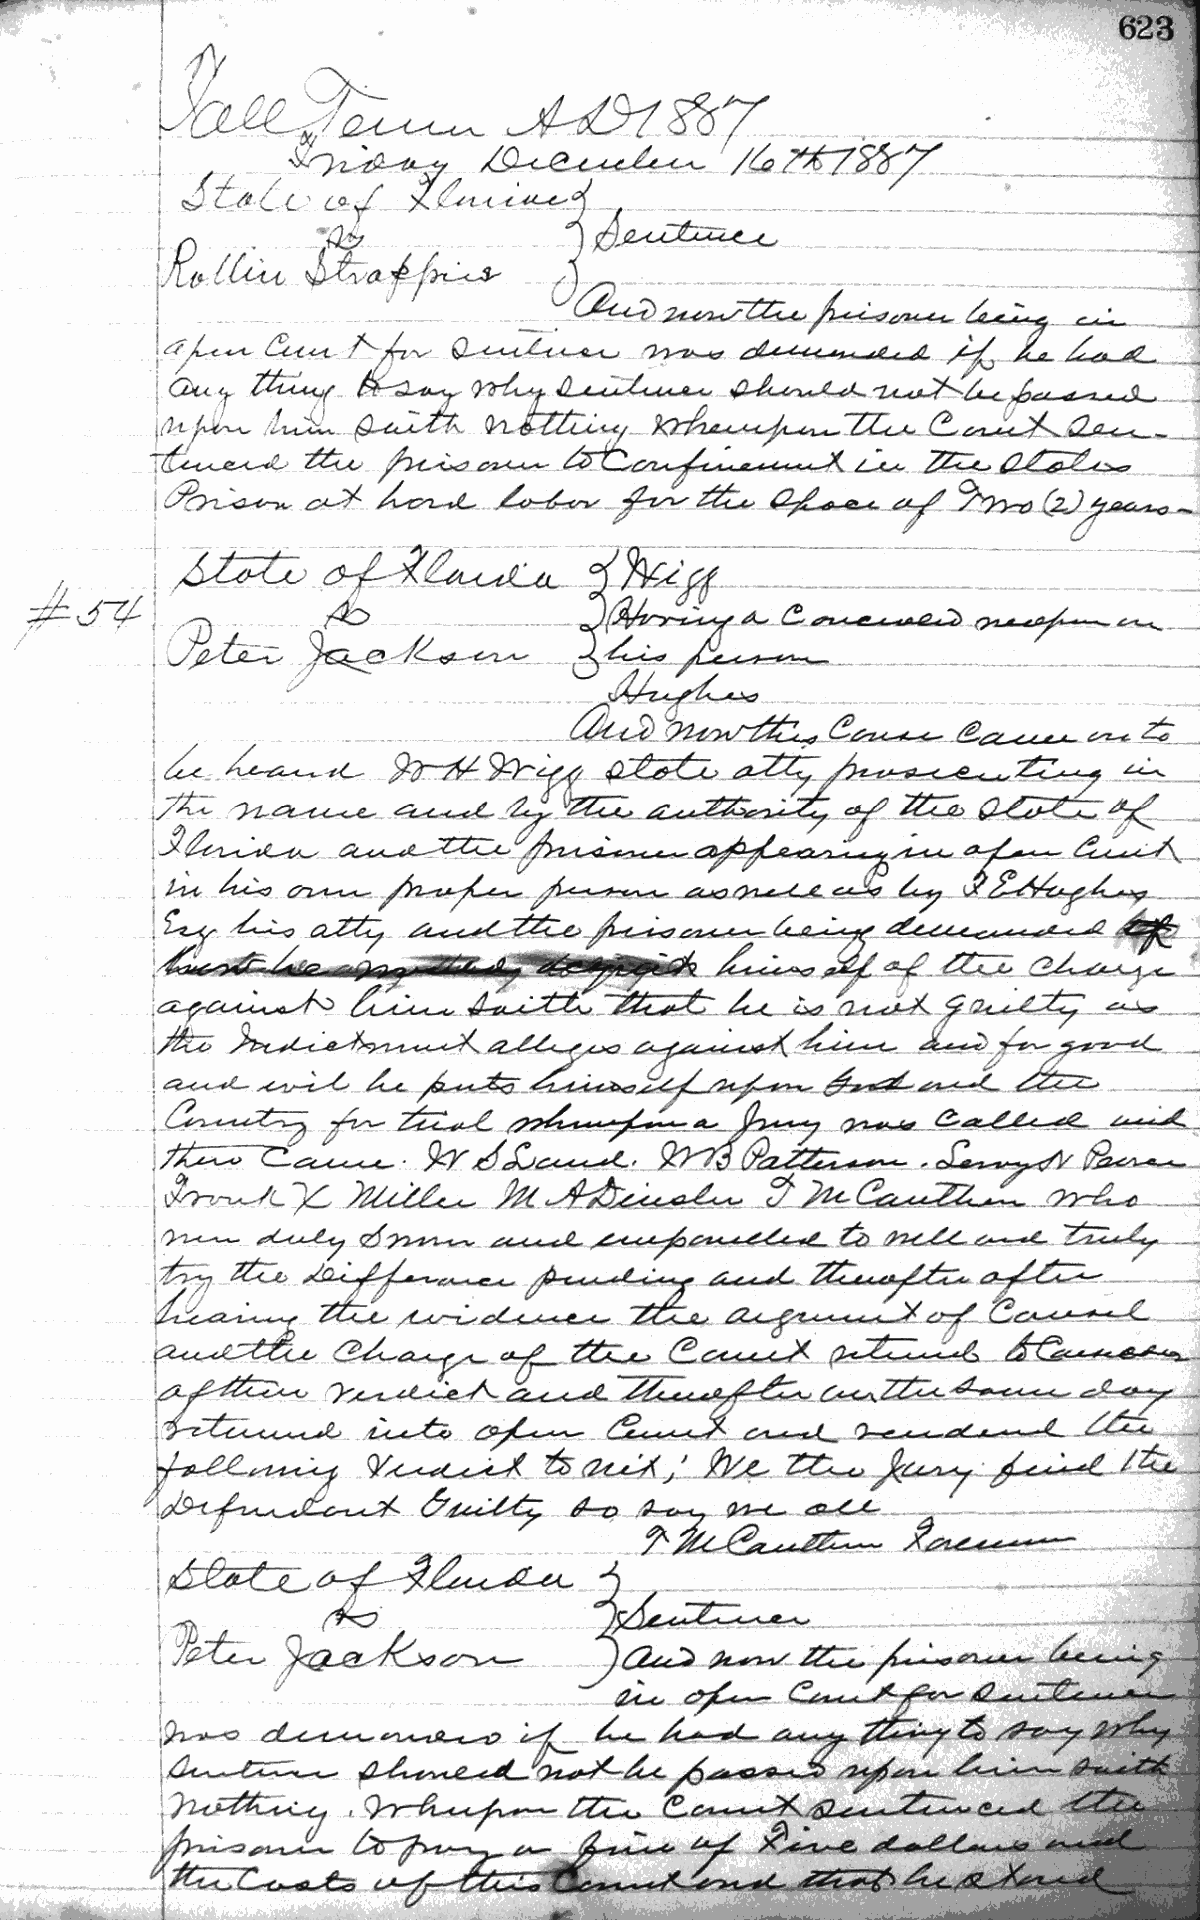 623
Fall Term A D 1887
Friday December 16th 1887
State of Florida
vs
Sentence
Rollin
And now the prisoner being in
open Court for Sentence was demanded if he had
any thing to say why sentence should not be passed
upon him saith nothing Whereupon the Court Sen-
tenced the prisoner to Confinement in the States
Prison at hard labor for the space of Two (2) years-
State of Florida Wigg
#54 vs Having a Concealed weapon on
Peter Jackson his person
Hughes
And now this Cause came on to
be heard W H Wigg state atty prosecuting in
the name and by the authority of the State of
Florida and the prisoner appearing in open Court
in his own proper person as well as by F E Hughes
Esq his atty and the prisoner being demanded
himself of the charge
against him saith that he is not guilty as
the Indictment alleges against him and for good
and evil he puts himself upon God and the
Country for trial whereupon a Jury was called and
there came. W S Land. W B Patterson. Leroy N
Frank X Miller M A T M Cauthen who
were duly Sworn and empanelled to well and truly
try the Difference pending and thereafter after
hearing the evidence the argument of Counsel
and the Charge of the Court retired to Consider
of their verdict and thereafter on the same day
returned into open Court and rendered the
following Verdict to wit; We the Jury find the
Defendant Guilty so say we all
T M Cauthen Foreman
State of Florida
vs Sentence
Peter Jackson And now the prisoner being
in open Court for sentence
was demanded if he had any thing to say why
sentence should not be passed upon him saith
nothing. Whereupon the Court sentenced the
prisoner to pay a fine of Five dollars and
the Costs of this Court and that he stand